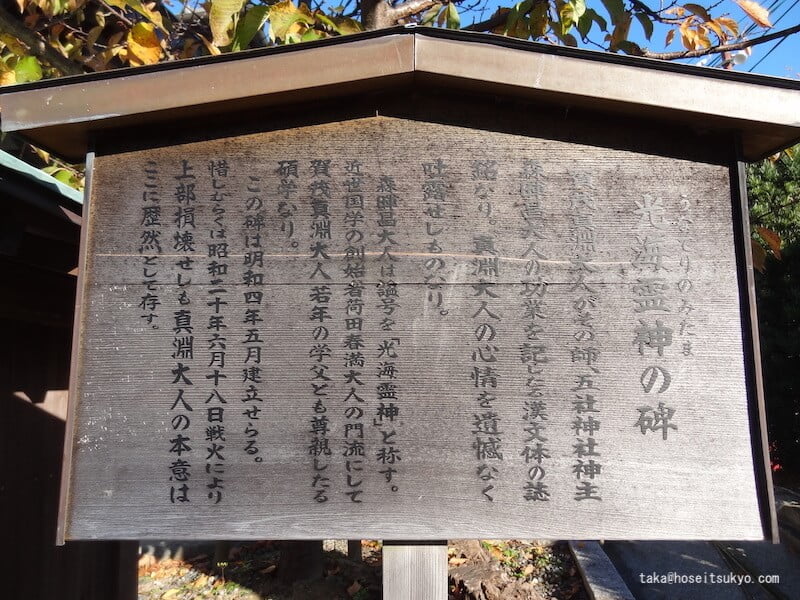 うみてりのみたま
光海霊神の碑
賀茂真淵大人がその師、五社神社神主
森暉昌大人の功業を記したる漢文体の誌
銘なり。真淵大人の心情を遺憾なく
吐露せしものなり。
森暉昌大人は諡号を「光海霊神」と称す。
近世国学の創始者荷田春満大人の門流にして
賀茂真淵大人若年の学父とも尊親したる
碩学なり。
この碑は明和四年五月建立せらる。
惜しむらくは昭和二十年六月十八日戦火により
上部損壊せしも真淵大人の本意は
ここに歴然として存す。
taka@hoseitsukyo.com